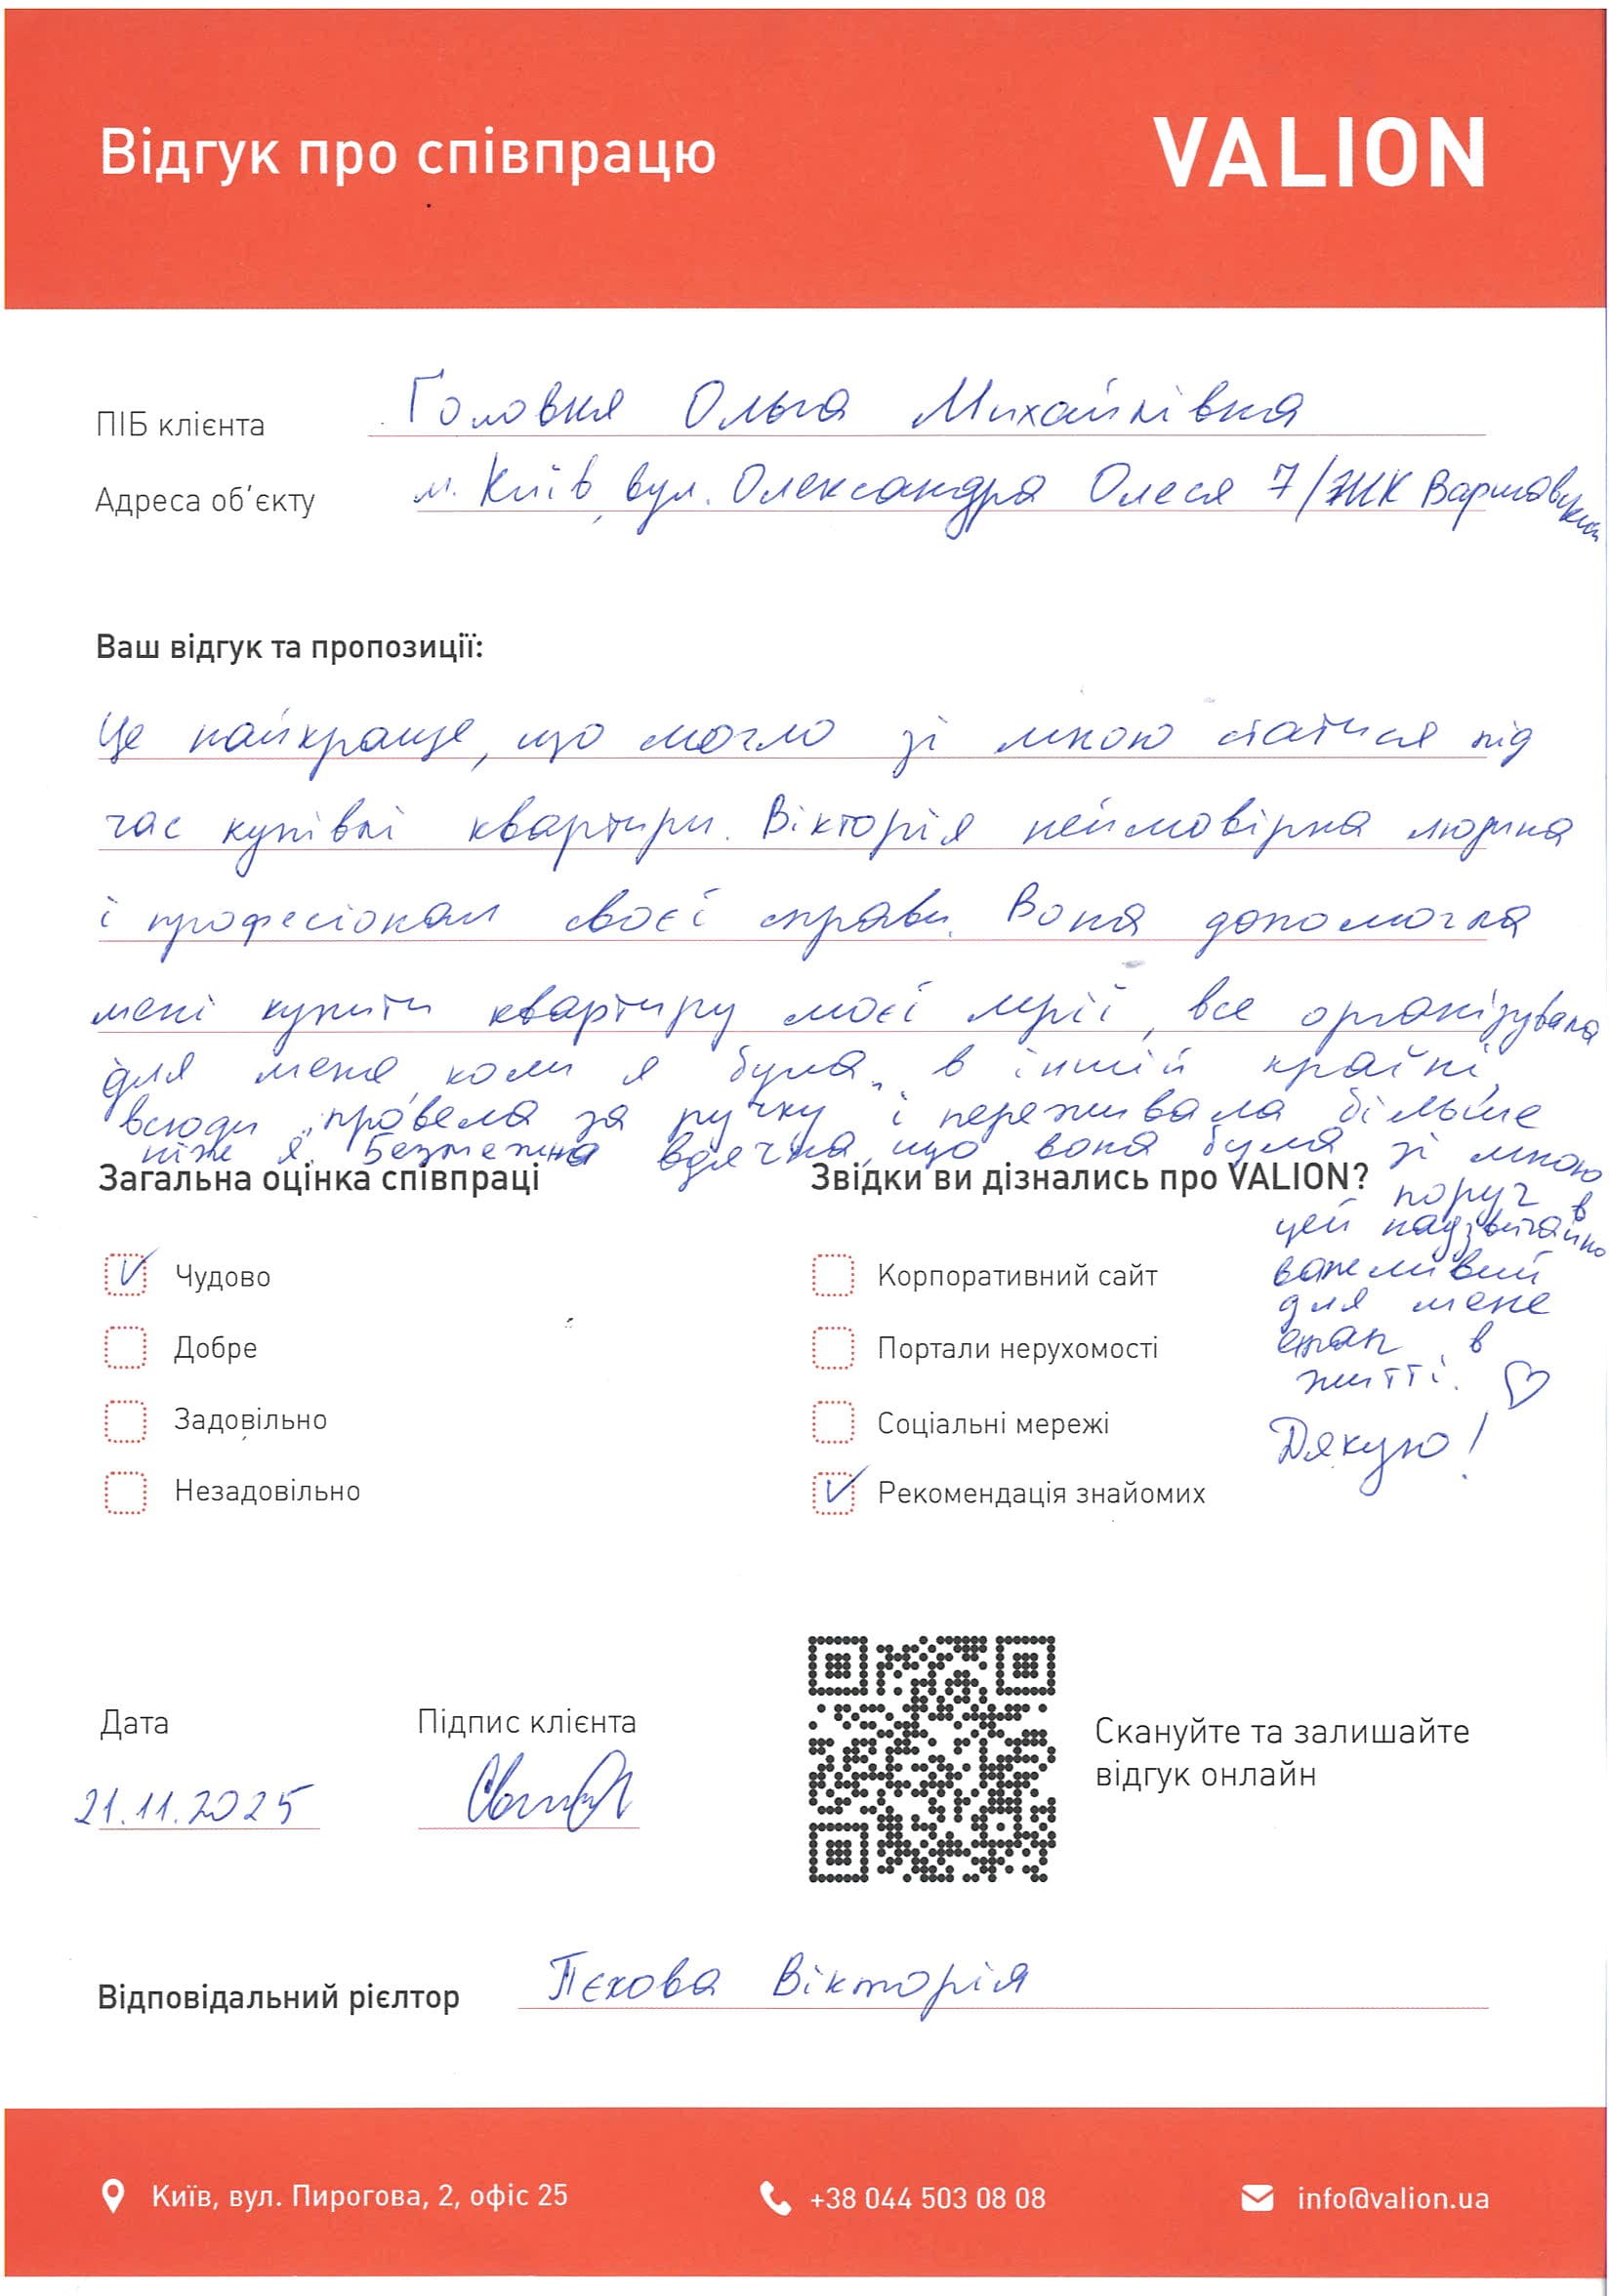 Відгук про співпрацю
VALION
ПІБ клієнта Головня Ольга Михайлівна
Адреса об'єкту м. Київ, вул. Олександра Олеся 7/ЖК Варшавский
Ваш відгук та пропозиції:
Це найкраще, що могло зі мною статися під
час купівлі квартири. Вікторія неймовірна людина
і професіонал своєї справи. Вона допомогла
мені купити квартиру моєї мрії, все організувала
для мене, коли я була в іншій країні,
всюди "провела за ручку" і переживала більше
ніж я. Безмежно вдячна, що вона була зі мною
поруч в
цей надзвичайно
важливий
для мене
етап в
житті. ♡
Дякую!
Загальна оцінка співпраці
Чудово
Добре
Задовільно
Незадовільно
Звідки ви дізнались про VALION?
Корпоративний сайт
Портали нерухомості
Соціальні мережі
Рекомендація знайомих
Дата
21.11.2025
Підпис клієнта
Скануйте та залишайте
відгук онлайн
Відповідальний рієлтор Пєхова Вікторія
Київ, вул. Пирогова, 2, офіс 25
+38 044 503 08 08
info@valion.ua